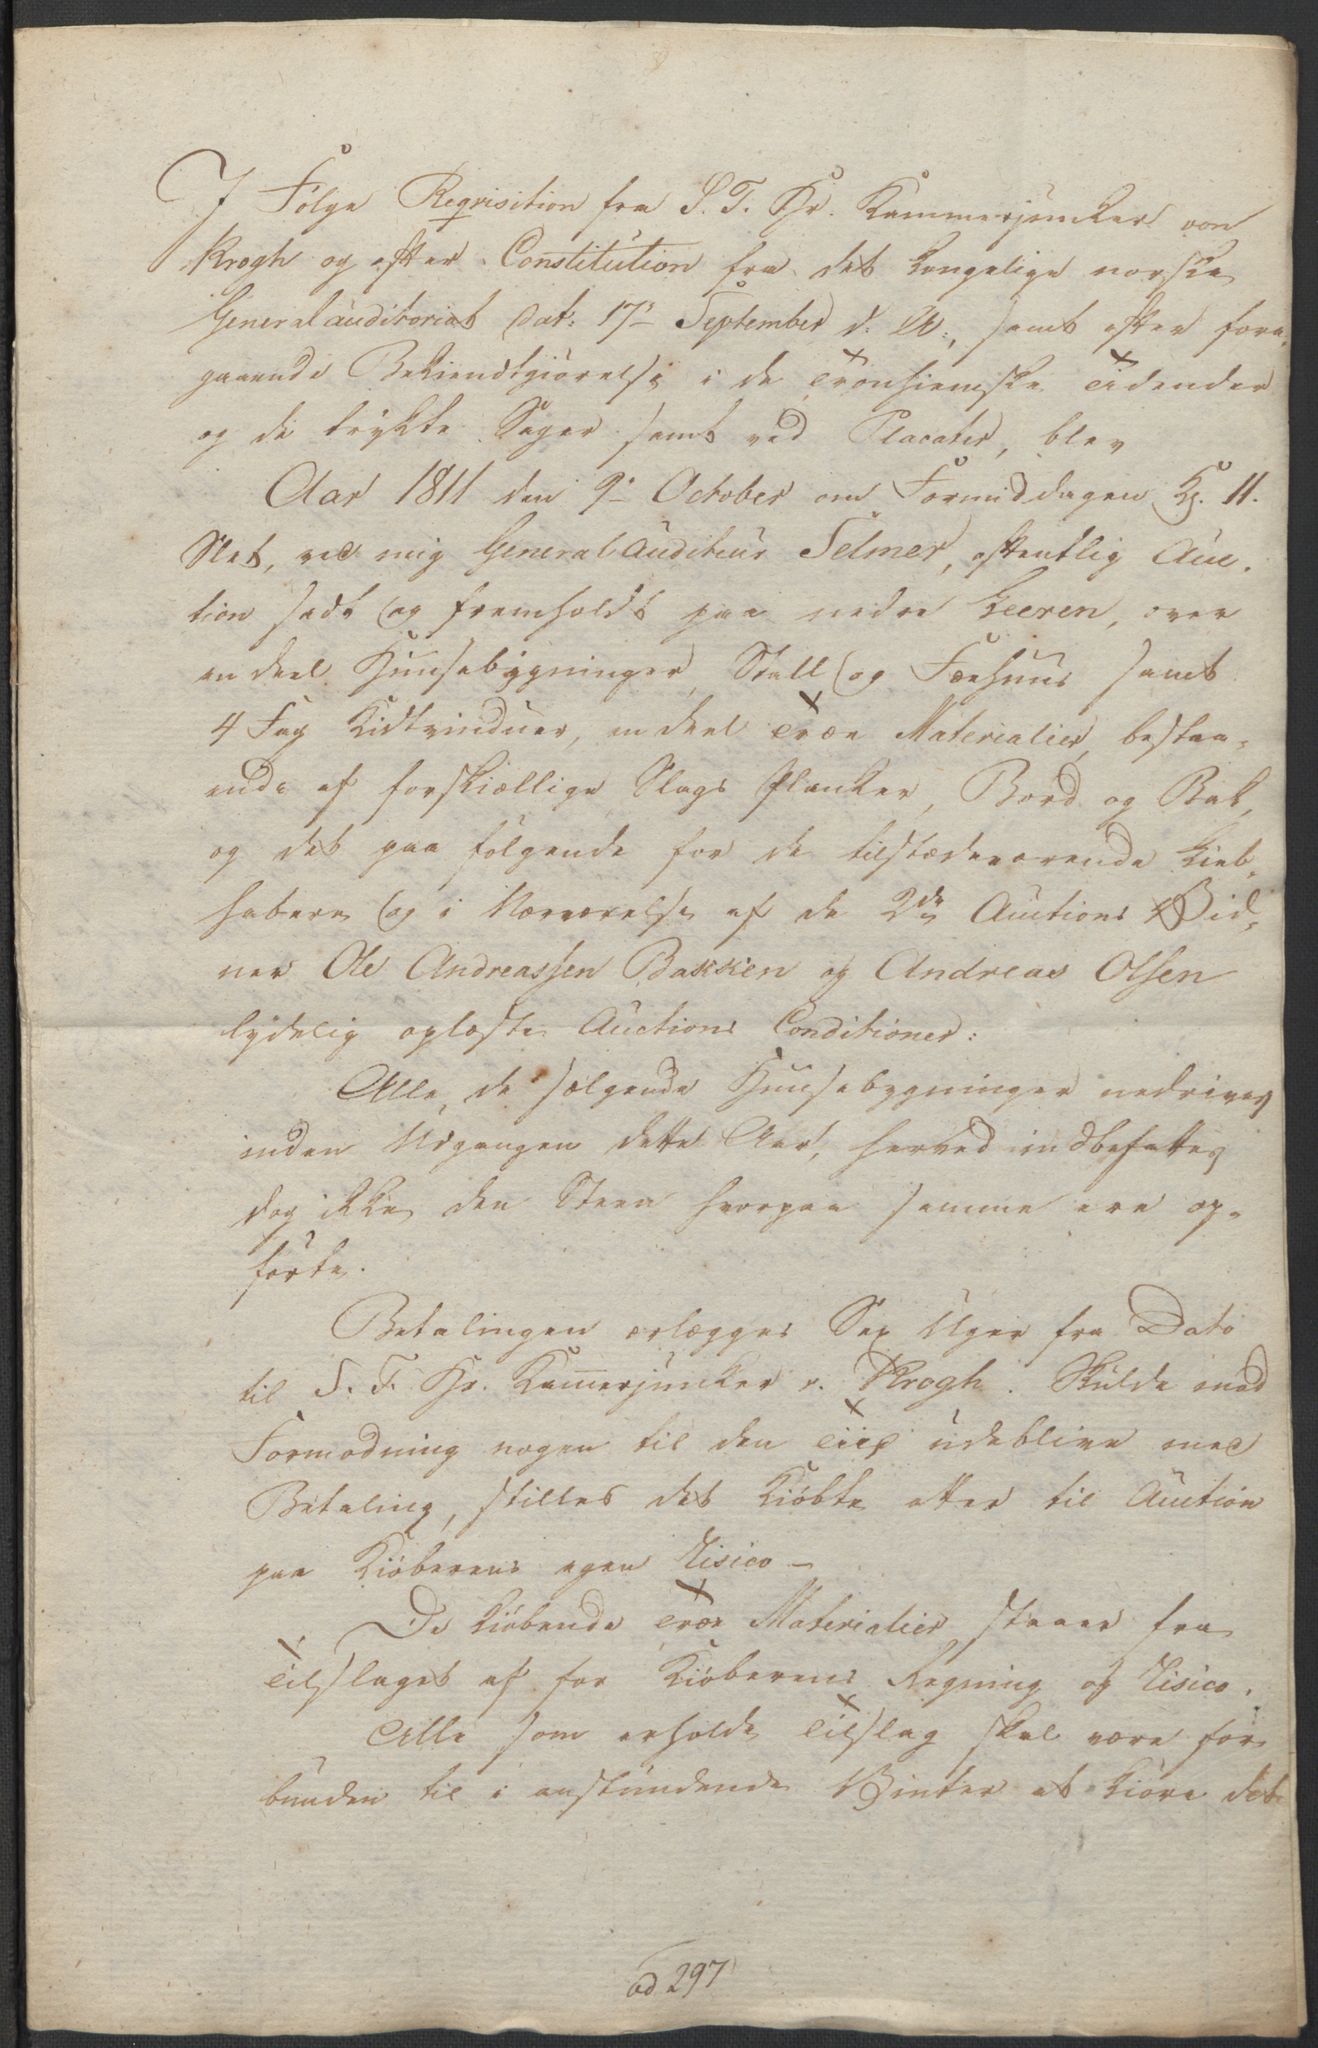 I Følge Reqvisition fra S. T. Hr. Kammerjuncker von
Krogh og efter Constitution fra det kongelige norske
Generalauditoriat dat: 17de September d. A:, samt efter fore-
gaaende Bekiendtgiørelse i de Tronhiemske Tidender
og de trykte Sager samt ved Placater, blev
Aar 1811 den 9de October om Formiddagen Kl. 11.
Slet, ved mig GeneralAuditeur Selmer, offentlig Auc-
tion sadt og fremholdt paa nedre Leeren, over
en deel Huusebygninger, Stall og Fæehuus samt
4 Fag Kidtvinduer, en deel Træe Materialier, bestaa-
ende af forskiællige Slags Planker, Bord og Bak,
og det paa følgende for de tilstædeværende Lieb-
habere og i Nærværelse af de 2de Auctions Vid-
ner Ole Andreassen Bakken og Andreas Olsen
lydelig oplæste Auctions Conditioner:
Alle de sælgende Huusebygninger nedrives
inden Udgangen dette Aar, herved indbefattes
dog ikke den Steen hvorpaa samme ere op-
førte.
Betalingen erlægges Sex Uger fra Dato
til S. T. Hr. Kam̅erjunker v. Krogh. Skulde mod
Formodning nogen til den Tiid udeblive med
Betaling, stilles det Kiøbte atter til Auction
paa Kiøberens egen Risico —
De kiøbende Træe Materialier staaer fra
Tilslaget af for Kiøberens Regning og Risico.
Alle som erholde Tilslag skal være for-
bunden til i anstundende Vinter at kiøre det
ad 297